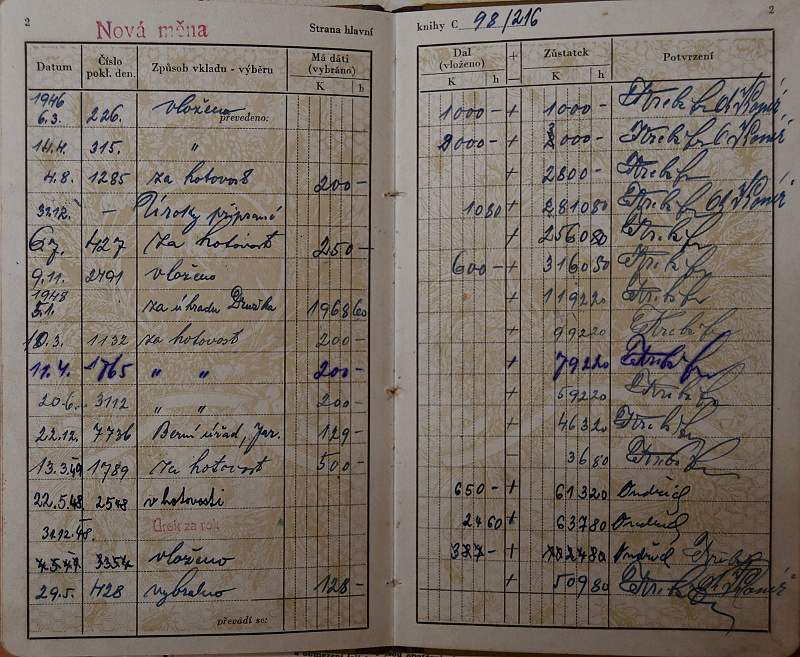 2
Nová měna
Strana hlavní
Datum
Číslo
pokl. den.
Způsob vkladu - výběru
Má dáti
(vybráno)
K h
1946
6.3. 226. vloženo
převedeno:
14.4. 315. "
4.8. 1285 za hotovost 200-
31.12. - Úroky připsané
6.7. 427 za hotovost 250-
9.11. 2491 vloženo
1948
5.1. za úhradu 1968 60
10.3. 1132 za hotovost 200-
11.4. 1765 " " 200-
20.6. 3112 " " 200-
22.12. 7736 Berní úřad, Jar. 129-
13.3.49 1789 za hotovost 500-
22.5.48 2548 v hotovosti
31.12.48. Úrok za rok
3354 vloženo
29.5. 428 vybráno 128-
převádí se:
knihy C 98/216
2
Dal
(vloženo)
K h
+
Zůstatek
K h
Potvrzení
1000- + 1000-
2000- + 3000-
+ 2800-
10 80 + 2810 80
+ 2560 80
600- + 3160 80
+ 1192 20
992 20
+ 792 20
+ 592 20
+ 463 20
- 36 80
650- + 613 20 Ondřich
24 60 + 637 80 Ondřich
+
+ 509 80